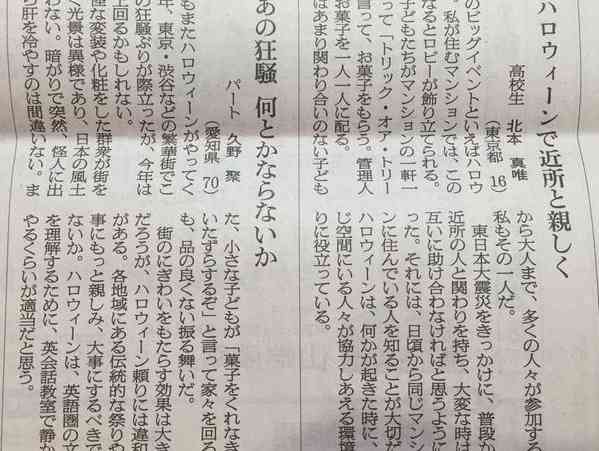 ハロウィーンで近所と親しく
高校生 北本 真唯
(東京都 16)
のビッグイベントといえばハロウ
。私が住むマンションでは、この
なるとロビーが飾り立てられる。
子どもたちがマンションの一軒一
って「トリック・オア・トリー
言って、お菓子をもらう。管理人
お菓子を一人一人に配る。
はあまり関わり合いのない子ども
から大人まで、多くの人々が参加する
私もその一人だ。
東日本大震災をきっかけに、普段か
近所の人と関わりを持ち、大変な時は
互いに助け合わなければと思うように
った。それには、日頃から同じマンシ
ンに住んでいる人を知ることが大切だ
ハロウィーンは、何かが起きた時に、
じ空間にいる人々が協力しあえる環境
りに役立っている。
あの狂騒 何とかならないか
パート 久野 聚
(愛知県 70)
もまたハロウィーンがやってく
年、東京・渋谷などの繁華街でこ
の狂騒ぶりが際立ったが、今年は
上回るかもしれない。
な変装や化粧をした群衆が街を
く光景は異様であり、日本の風土
わない。暗がりで突然、怪人に出
ら肝を冷やすのは間違いない。ま
た、小さな子どもが「菓子をくれなき
いたずらするぞ」と言って家々を回る
も、品の良くない振る舞いだ。
街のにぎわいをもたらす効果は大き
だろうが、ハロウィーン頼りには違和
がある。各地域にある伝統的な祭りや
事にもっと親しみ、大事にするべきで
ないか。ハロウィーンは、英語圏の文
を理解するために、英会話教室で静か
やるくらいが適当だと思う。